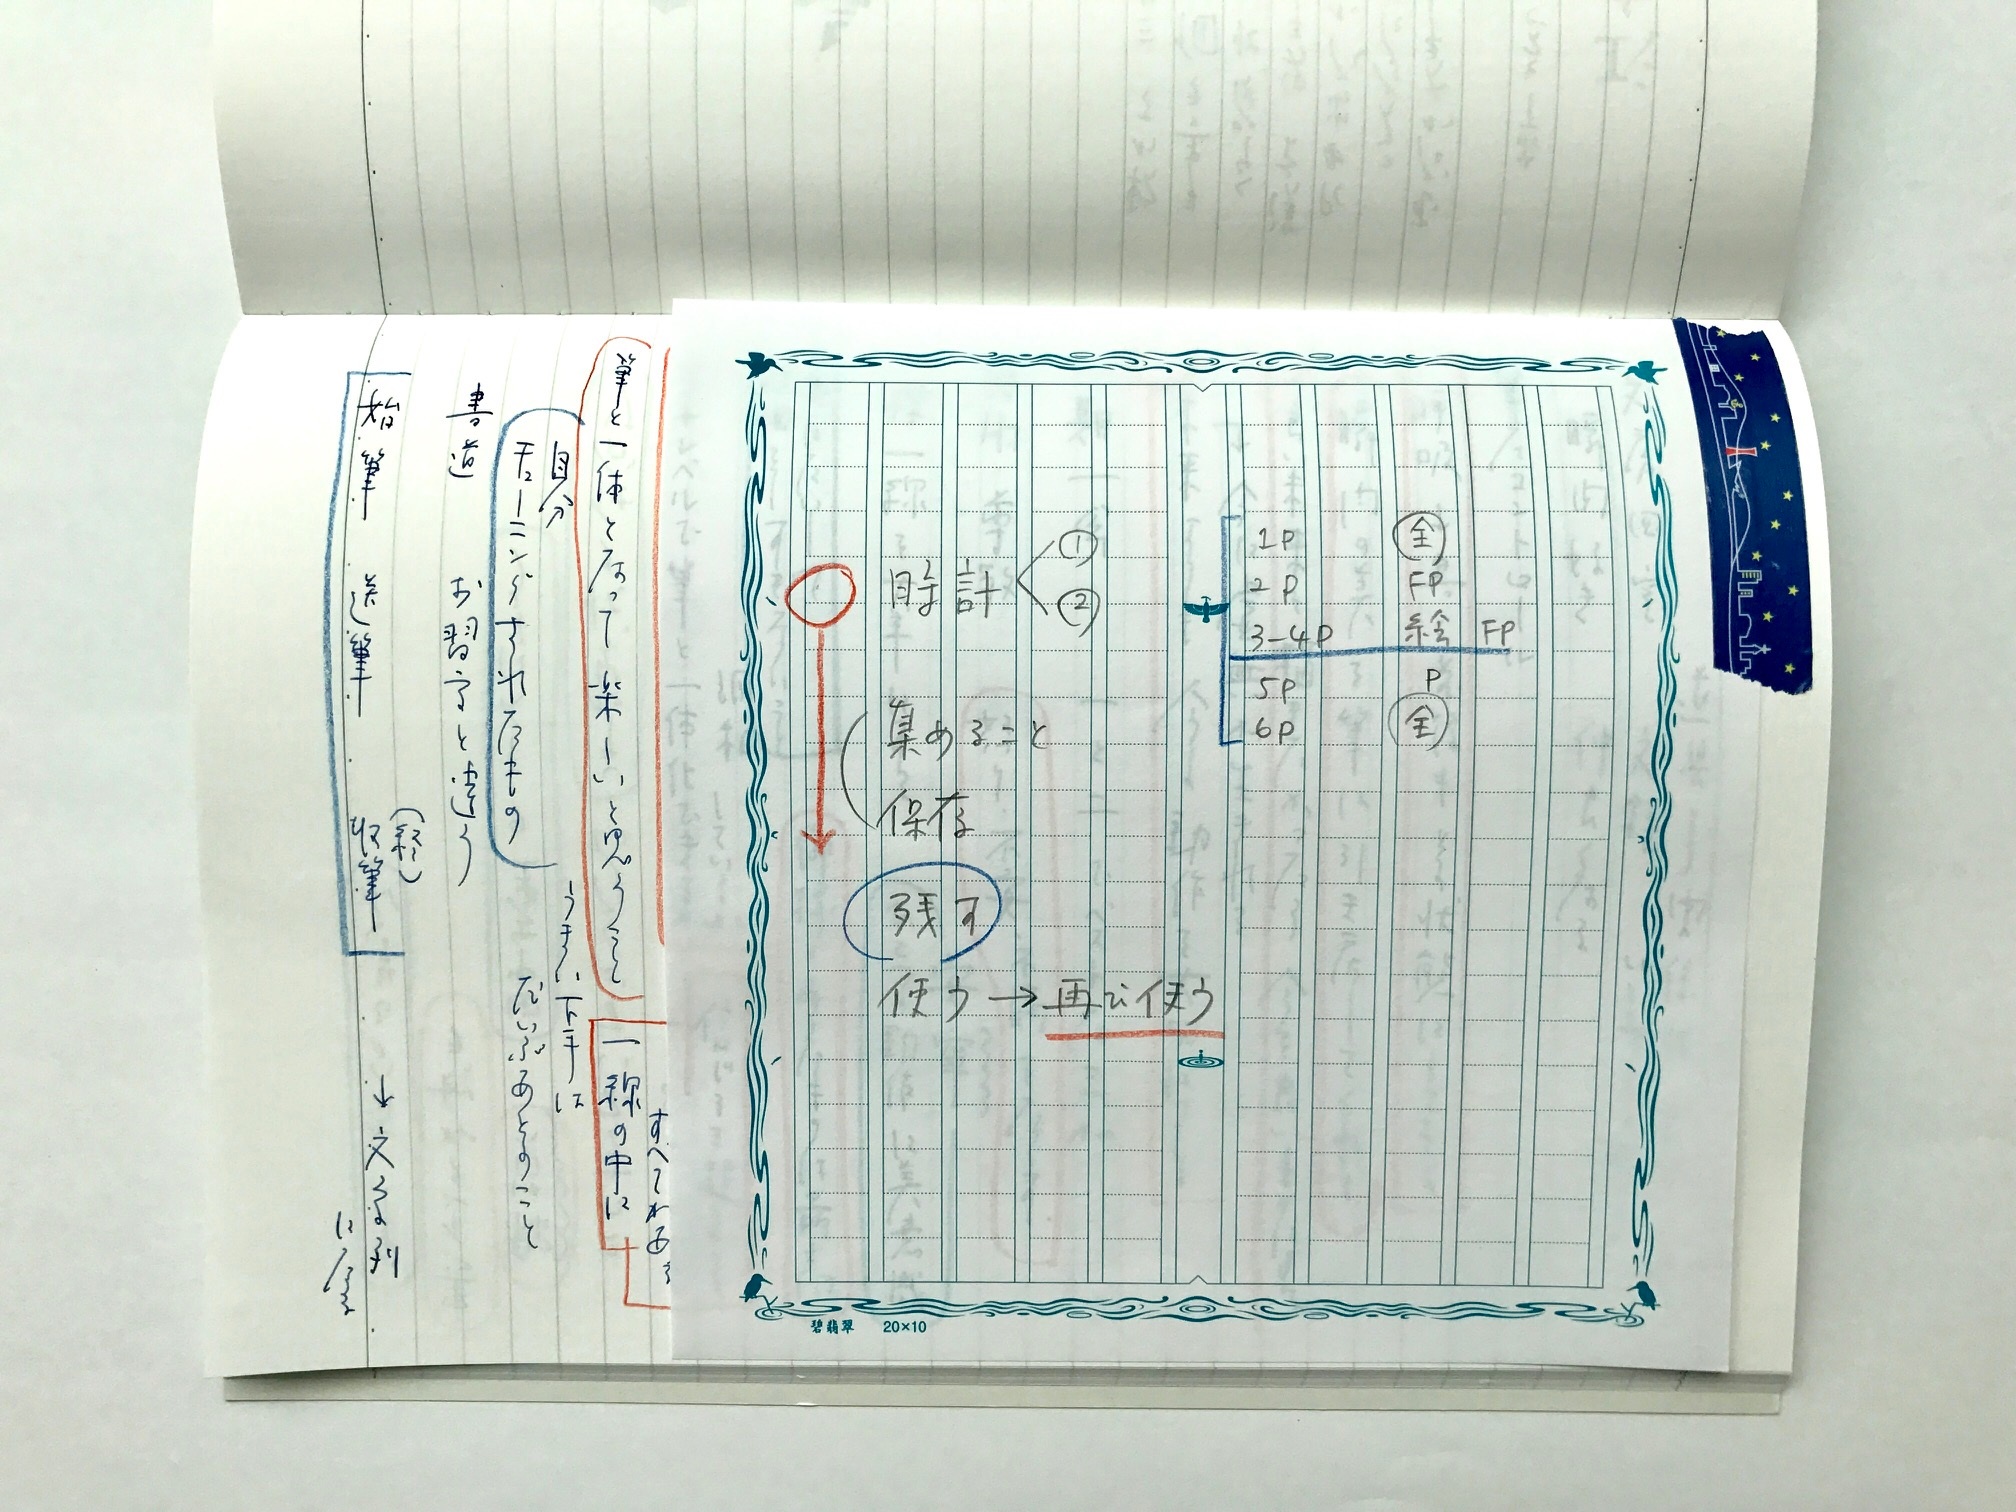 時計 ① ②
集めること
保存
残す
使う→再び使う
1P 全
2P FP
3-4P 絵 FP
5P P
6P 全
碧翡翠 20×10
すべてがある
一線の中に
筆と一体となって楽しいと思うこと
うまい下手は
自分
チューニングされたもの
だいぶあとのこと
書道 お習字と違う
(終)
始筆 送筆 収筆
→文字列
に